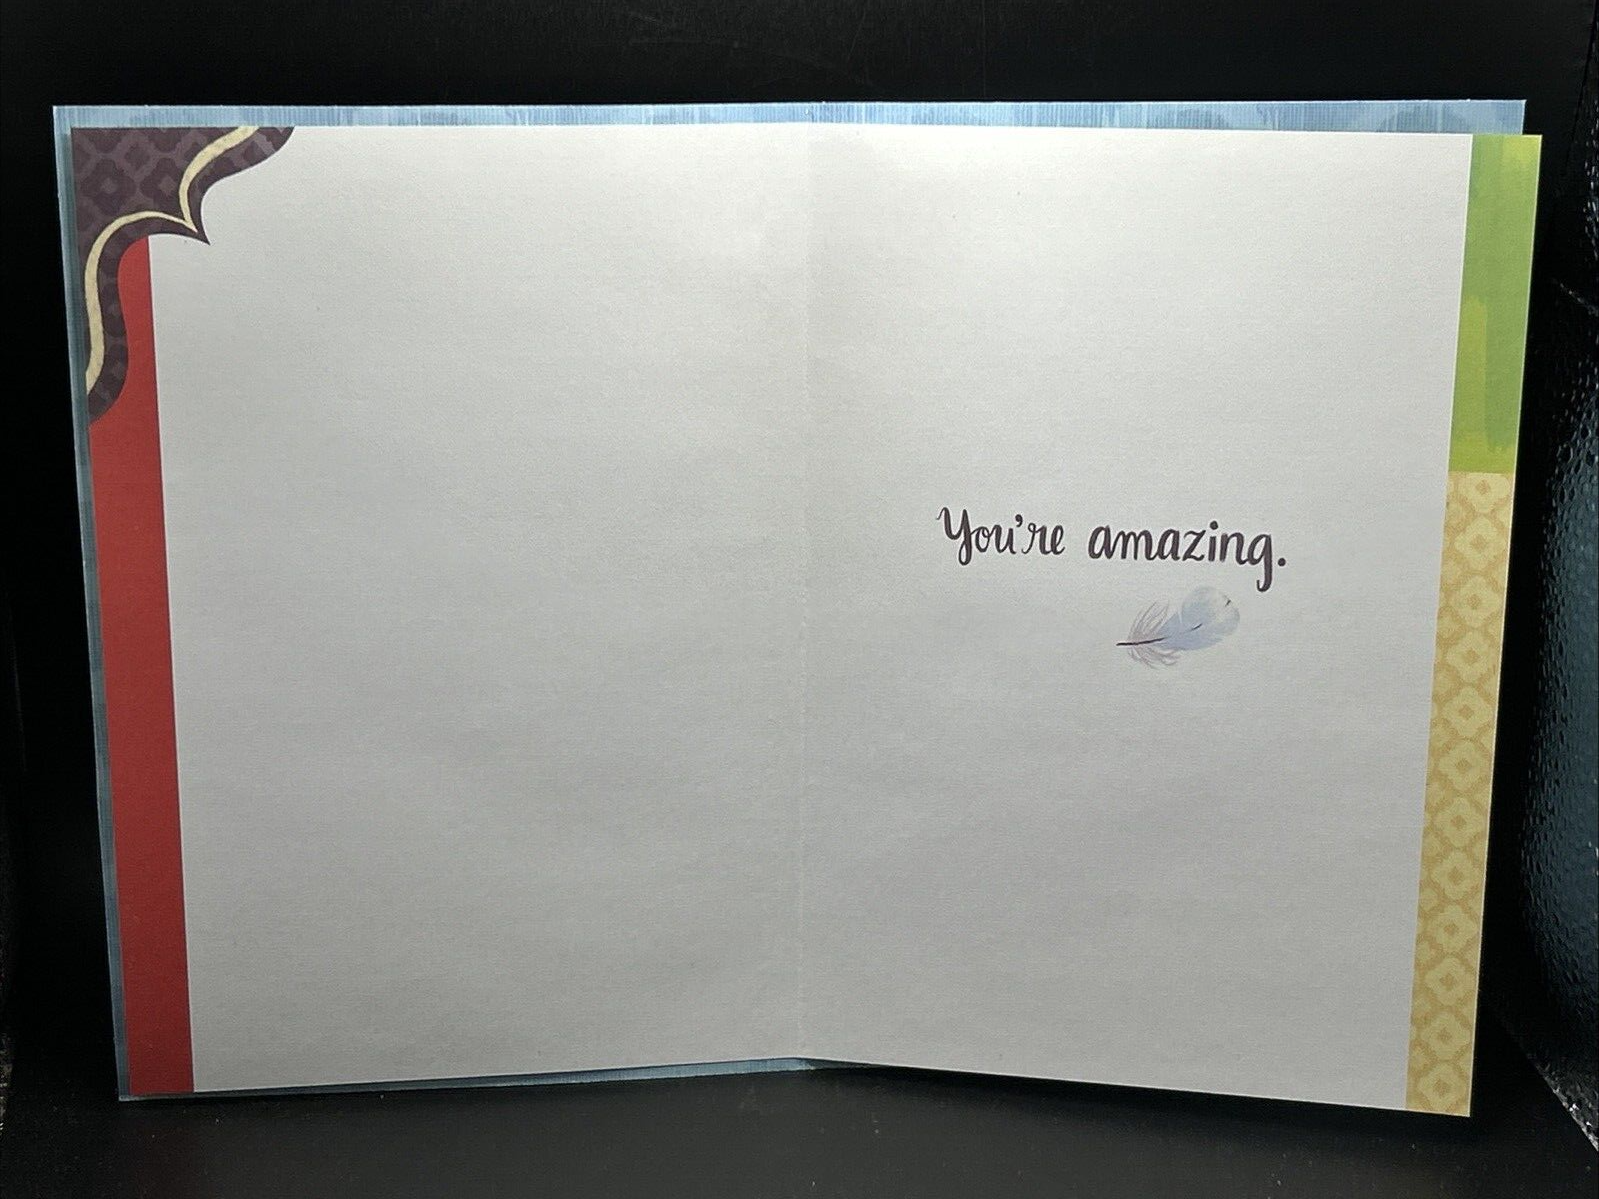 You're amazing.